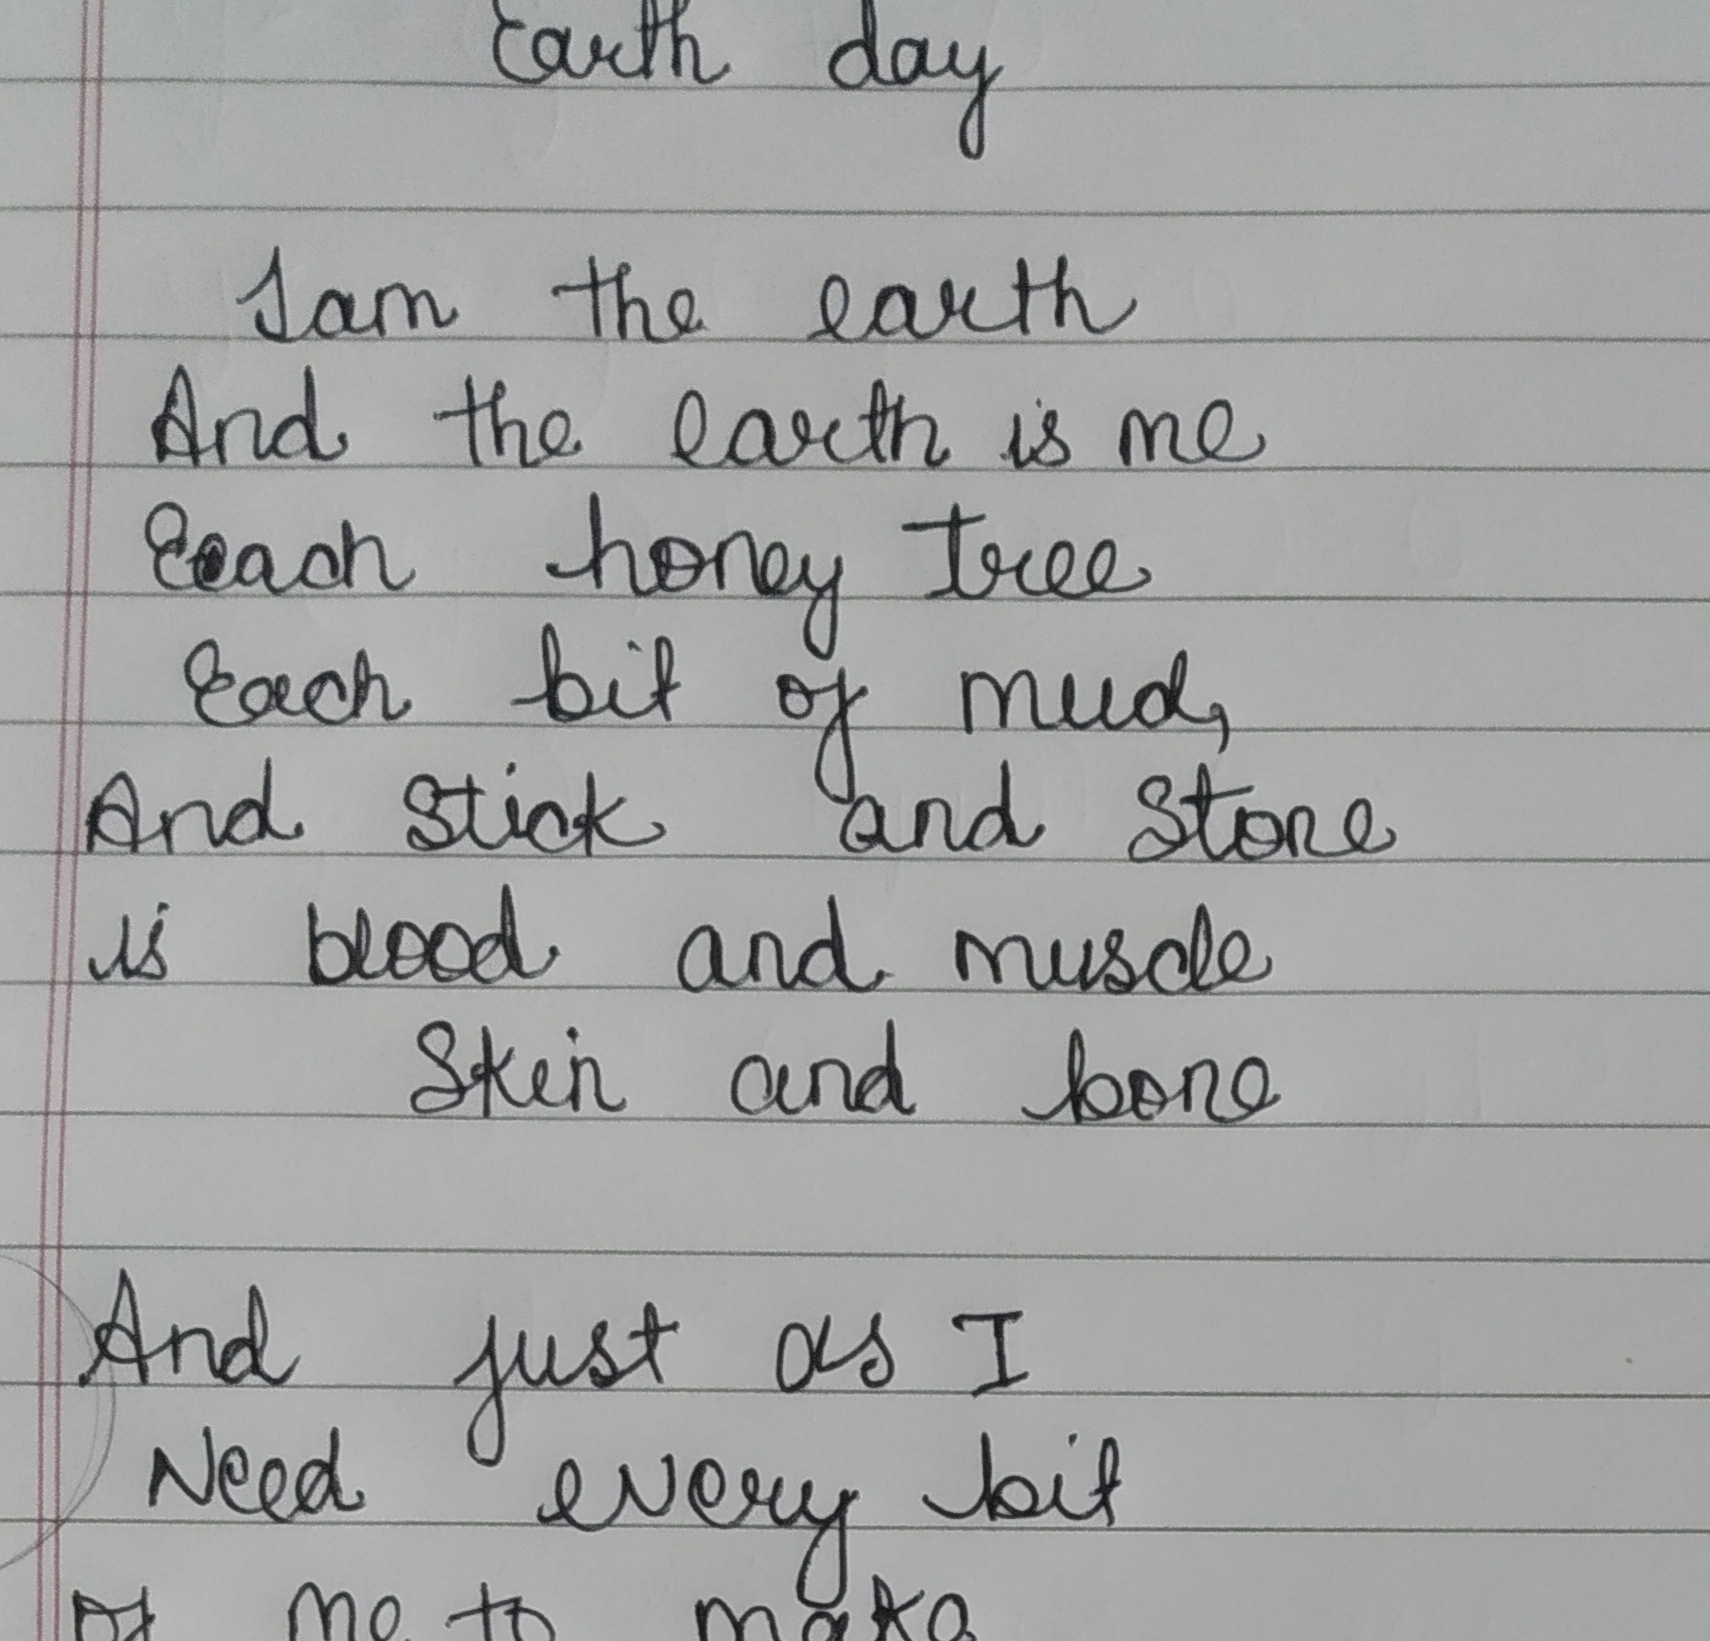 Earth day
I am the earth
And the earth is me
Each honey tree
Each bit of mud,
And Stick and Stone
is blood and muscle
Skin and bone
And just as I
Need every bit
of me to make